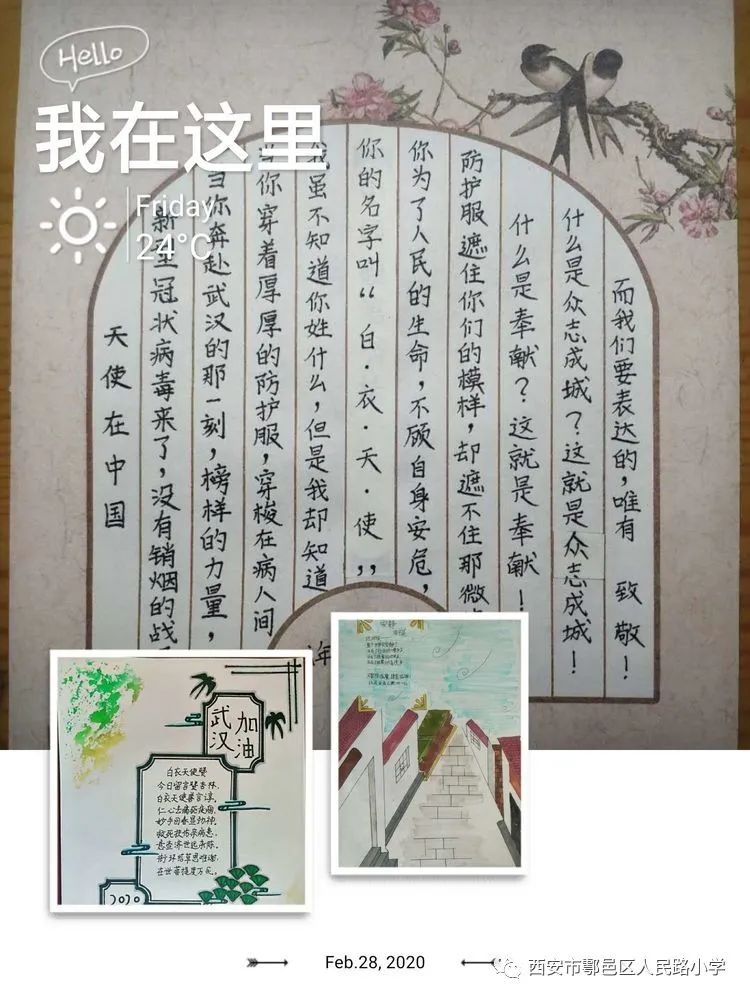 Hello
我在这里
Friday
24°C
天使在中国
新型冠状病毒来了，没有销烟的战
当你奔赴武汉的那一刻，榜样的力量，
当你穿着厚厚的防护服，穿梭在病人间
我虽不知道你姓什么，但是我却知道
你的名字叫“白·衣·天·使”
你为了人民的生命，不顾自身安危，
防护服遮住你们的模样，却遮不住那微
什么是奉献？这就是奉献！
什么是众志成城？这就是众志成城！
而我们要表达的，唯有 致敬！
年
武汉
加油
白衣天使赞
今日留言赞杏林，
白衣天使善言谆。
仁心去痛驱疾
妙手回春显功神。
救死扶伤杀病患，
悬壶济世起
衔环结草思难谢，
在世菩提度万民。
2020
Feb.28, 2020
西安市鄠邑区人民路小学